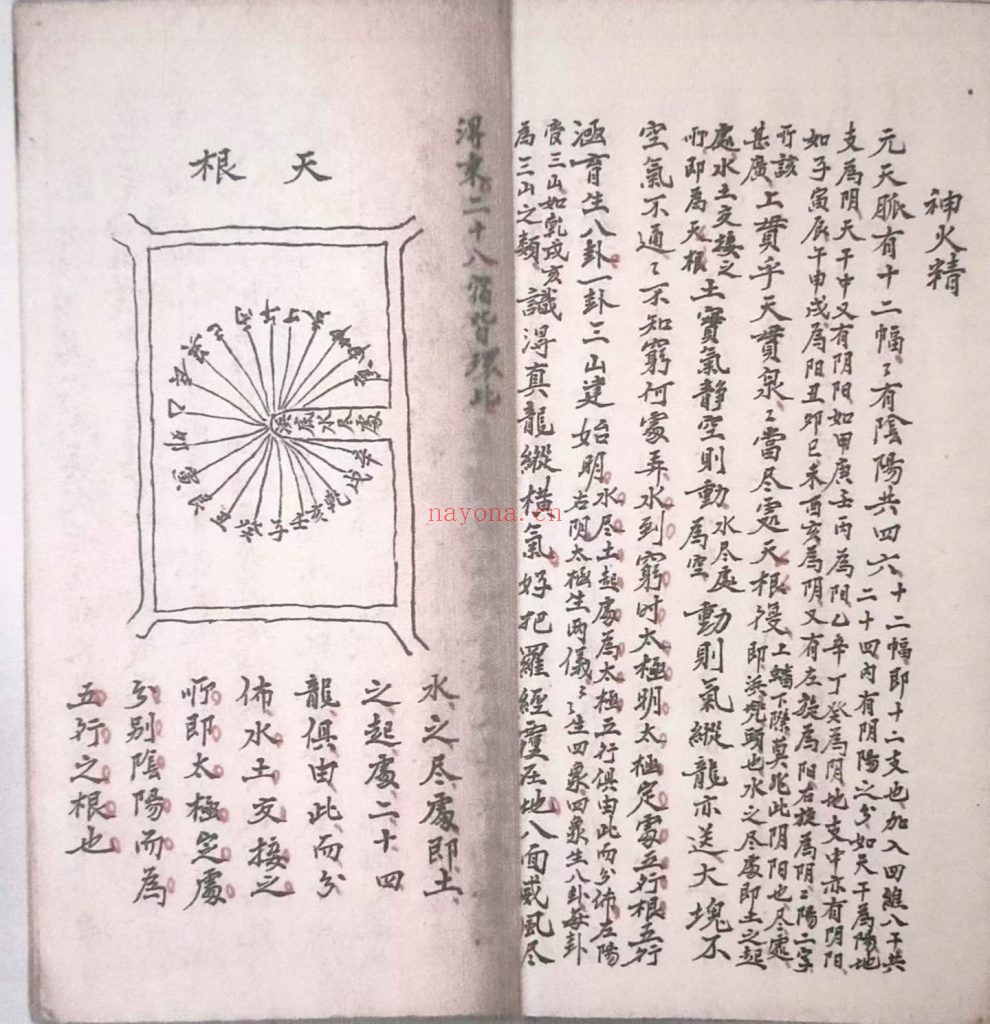 神火精
元天脈有十二幅〻有陰陽共四六十二幅即十二支也加入四維八干共二十四內有阴陽之分如天干為陽地
支為阴天干中又有阴阳如甲庚壬丙為阳乙辛丁癸為阴地支中亦有阴阳
如子寅辰午申戌為阳丑卯巳未酉亥為阴又有左旋為阳右旋為阴〻陽二字
所該甚廣上貫乎天貫泉〻當尽處天根後上蟠下際莫非此阴阳也尽處即浜兜頭也水之尽處即土之起
處水土交接之所即為天根土實氣静空則動水尽處為空動則氣縱龍亦送大塊不
空氣不通〻不知窮何處弄水到窮时太極明太極定處五行根五行
涵育生八卦一卦三山建始明水尽土起處為太極五行俱由此而分佈左陽右阴太極生两儀〻〻生四象四象生八卦每卦
管三山如乾戌亥為三山之類識淂真龍縱橫氣好把羅經在地八面威風尽
淂来二十八宿皆環此
天根
浜底水尽處
丙
午
丁
未
巳
乙
卯
子
壬
亥
乾
戌
辛
水之尽處即土
之起處二十四
龍俱由此而分
佈水土交接之
所即太極定處
分别陰陽而為
五行之根也
nayona.cn